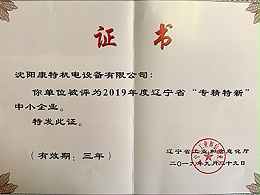 证书
沈阳康特机电设备有限公司：
你单位被评为2019年度辽宁省“专精特新”
中小企业。
特发此证。
（有效期：三年）
辽宁省工业和信息化厅
二〇一九年九月二十九日